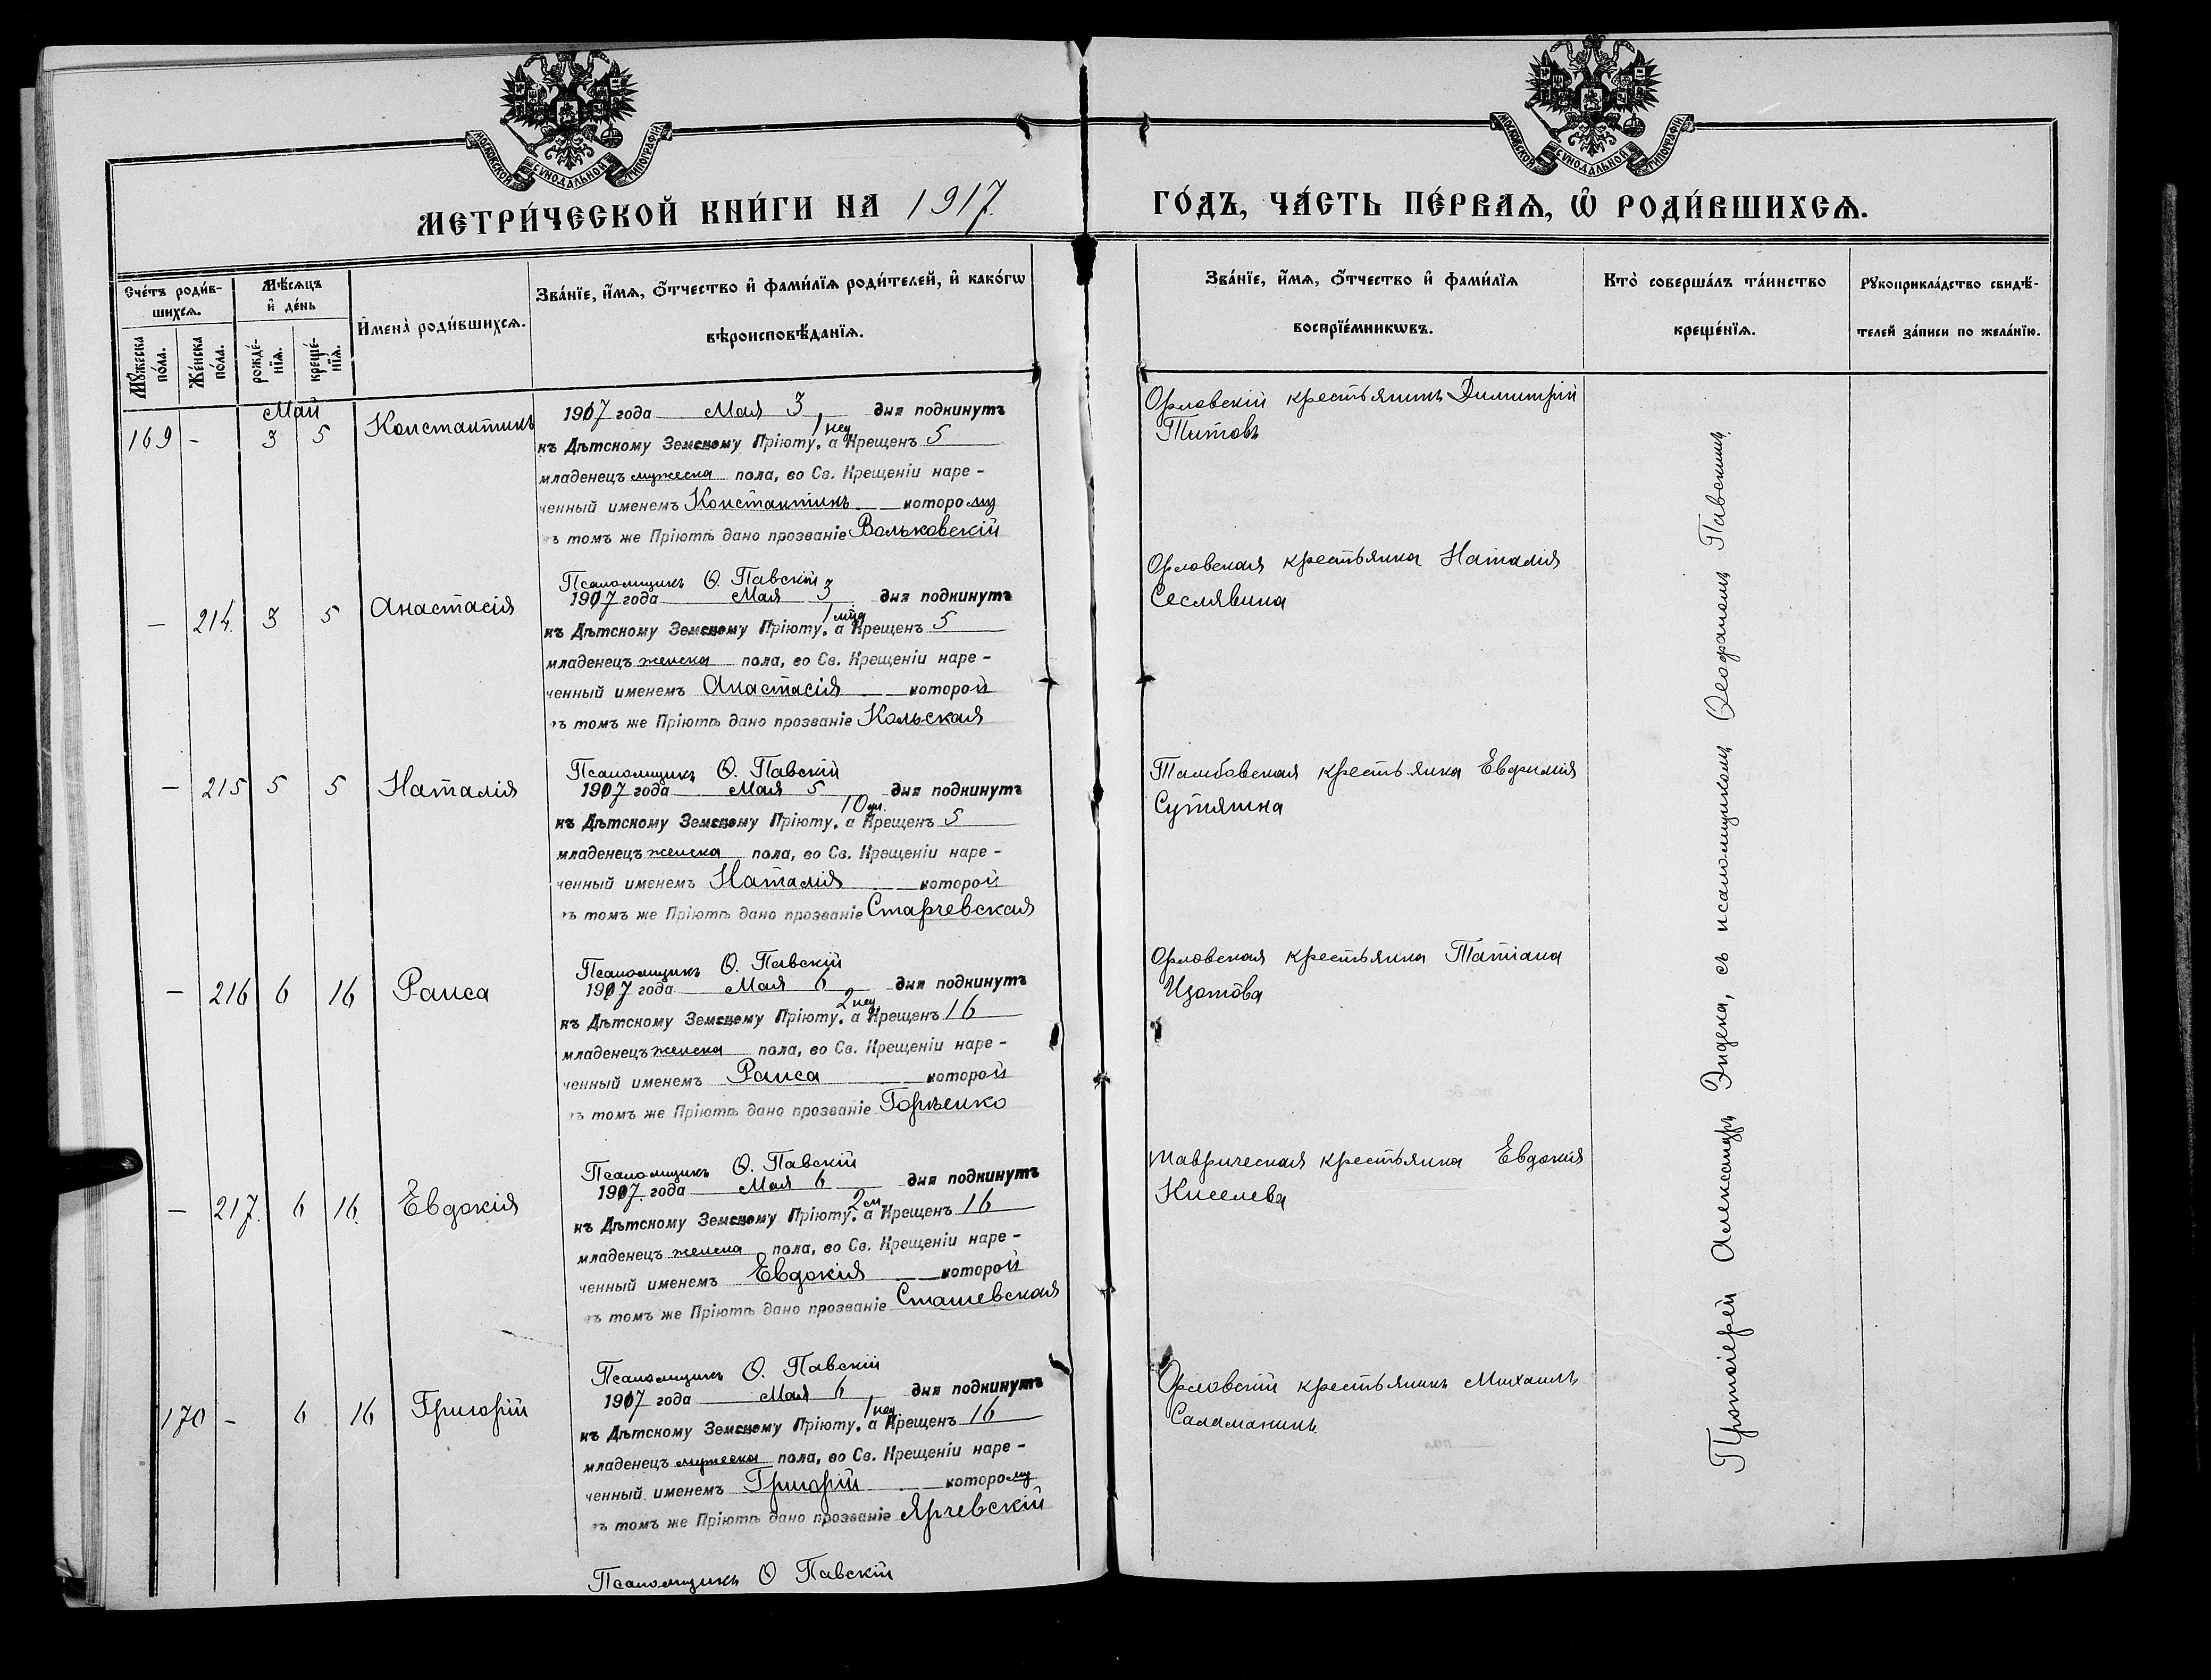 МОСКОВСКОЙ СѴНОДАЛЬНОЙ ТИПОГРАФІИ
МОСКОВСКОЙ СѴНОДАЛЬНОЙ ТИПОГРАФІИ
МЕТРИ́ЧЕСКОЙ КНИ́ГИ НА 1917.
ГО́ДЪ, ЧА́СТЬ ПЕ́РВАѦ, Ѡ҆ РОДИ́ВШИХСѦ.
Сче́тъ роди́в-
шихсѧ.
Мꙋ́жеска по́ла.
Же́нска по́ла.
Мѣ́сѧцъ
и҆ де́нь
рожде́-
нїѧ.
креще́-
нїѧ.
И҆мена̀ роди́вшихсѧ.
Зва́нїе, и҆́мѧ, ѻ҆́тчество и҆ фами́лїѧ роди́телей, и҆ како́гѡ
вѣроисповѣ́данїѧ.
Зва́нїе, и҆́мѧ, ѻ҆́тчество и҆ фами́лїѧ
воспрїе́мникѡвъ.
Кто̀ соверша́лъ та́инство
креще́нїѧ.
Рꙋкоприкла́дство свидѣ́-
телей за́писи по жела́нїю.
Май
169 - 3 5 Константинъ
1917 года Мая 3 дня подкинутъ
1 нед
къ Дѣтскому Земскому Пріюту, а Крещенъ 5
младенецъ мужеска пола, во Св. Крещеніи наре-
ченный именемъ Константинъ которому
въ томъ же Пріютѣ дано прозваніе Вольковскій
Псаломщикъ Ѳ. Павскій
Орловскій крестьянинъ Димитрій
Титовъ
- 214. 3 5 Анастасія
1917 года Мая 3 дня подкинутъ
1 мѣд
къ Дѣтскому Земскому Пріюту, а Крещенъ 5
младенецъ женска пола, во Св. Крещеніи наре-
ченный именемъ Анастасія которой
въ томъ же Пріютѣ дано прозваніе Кольская
Псаломщикъ Ѳ. Павскій
Орловская крестьянка Наталія
Сеслявина
- 215 5 5 Наталія
1917 года Мая 5 дня подкинутъ
10 дн.
къ Дѣтскому Земскому Пріюту, а Крещенъ 5
младенецъ женска пола, во Св. Крещеніи наре-
ченный именемъ Наталія которой
въ томъ же Пріютѣ дано прозваніе Старчевская
Псаломщикъ Ѳ. Павскій
Тамбовская крестьянка Евфимія
Сутяшна
- 216 6 16 Раиса
1917 года Мая 6 дня подкинутъ
2 нед.
къ Дѣтскому Земскому Пріюту, а Крещенъ 16
младенецъ женска пола, во Св. Крещеніи наре-
ченный именемъ Раиса которой
въ томъ же Пріютѣ дано прозваніе Горѣенко
Псаломщикъ Ѳ. Павскій
Орловская крестьянка Татіана
Изотова
- 217. 6 16. Евдокія
1917. года Мая 6 дня подкинутъ
къ Дѣтскому Земскому Пріюту, а Крещенъ 16
младенецъ женска пола, во Св. Крещеніи наре-
ченный именемъ Евдокія которой
въ томъ же Пріютѣ дано прозваніе Сташевская
Псаломщикъ Ѳ. Павскій
Таврическая крестьянка Евдокія
Киселева
170 - 6 16 Григорій
1917 года Мая 6 дня подкинутъ
1 нед
къ Дѣтскому Земскому Пріюту, а Крещенъ 16
младенецъ мужеска пола, во Св. Крещеніи наре-
ченный именемъ Григорій которому
въ томъ же Пріютѣ дано прозваніе Ярчевскій
Псаломщикъ Ѳ Павскій
Орловскій крестьянинъ Михаилъ
Саламанинъ
Протоіерей Александръ Эндека, съ псаломщикомъ Ѳеофаномъ Павскимъ.